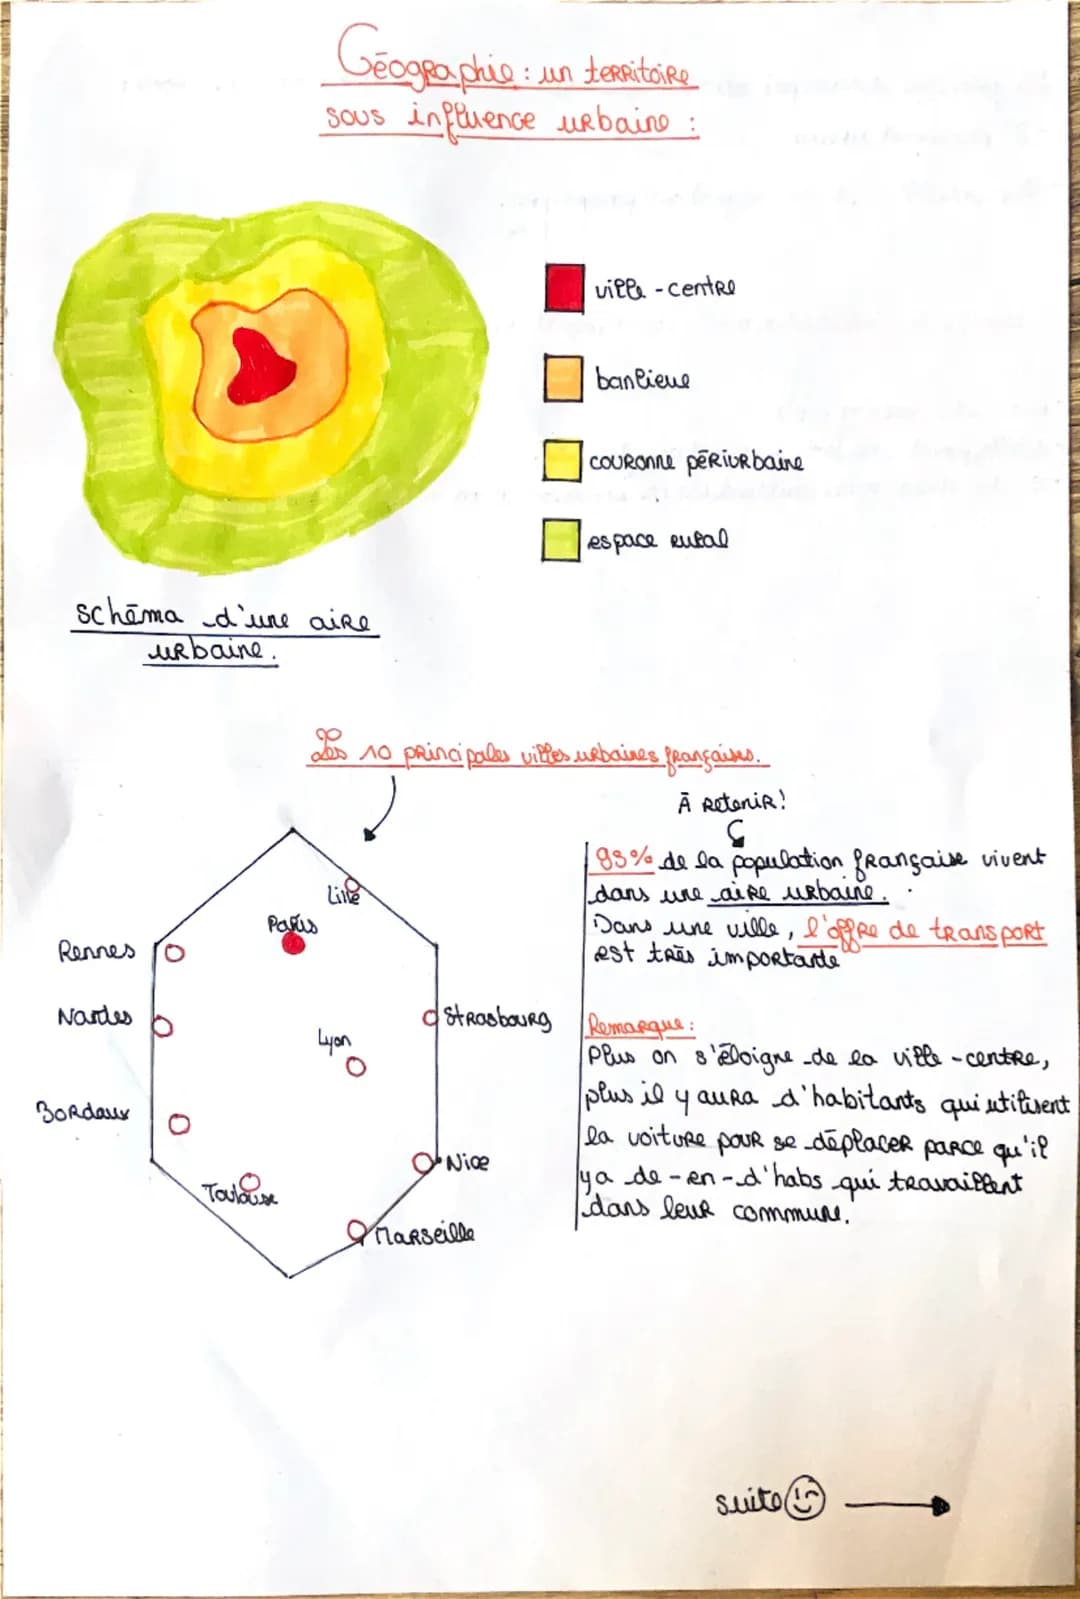 Géographie : un territoire
sous influence urbaine :
ville - centre
banlieue
couronne périurbaine
espace rural
schéma d'une aire
urbaine.
Les 10 principales villes urbaines françaises.
À retenir !
Lille
Paris
Rennes
Nantes
Strasbourg
Lyon
Bordaux
Nice
Toulouse
Marseille
93% de la population française vivent
dans une aire urbaine.
Dans une ville, l'offre de transport
est très importante
Remarque :
Plus on s'éloigne de la ville - centre,
plus il y aura d'habitants qui utilisent
la voiture pour se déplacer parce qu'il
y a de - en - d'habs qui travaillent
dans leur commune.
suite